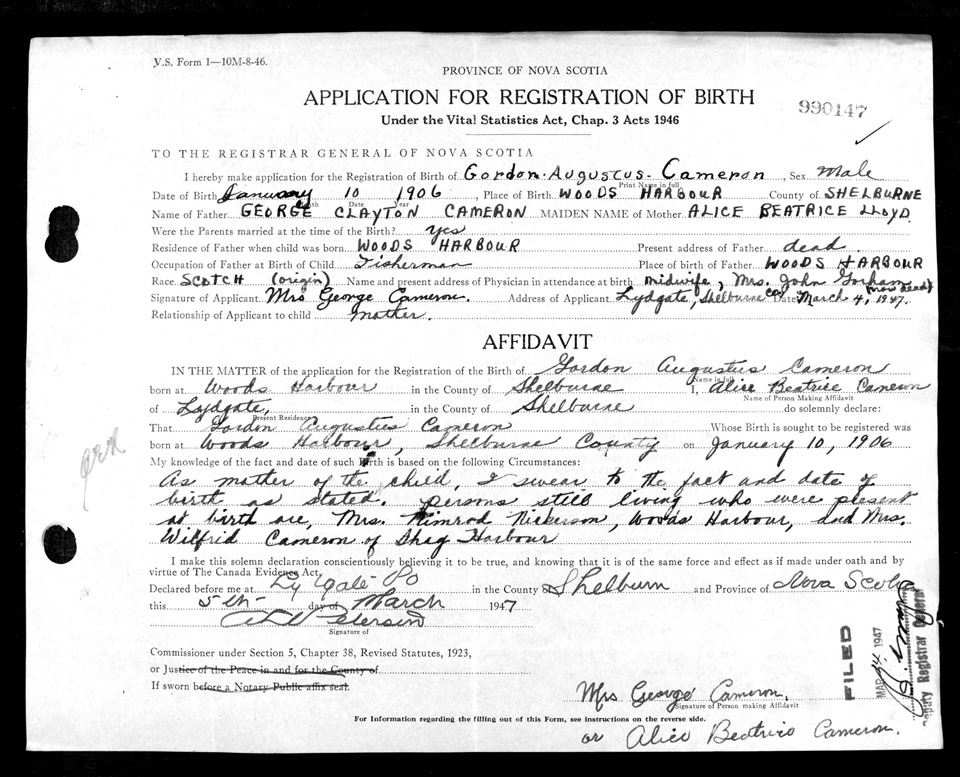 V.S. Form 1—10M-8-46.
PROVINCE OF NOVA SCOTIA
APPLICATION FOR REGISTRATION OF BIRTH
990147
Under the Vital Statistics Act, Chap. 3 Acts 1946
TO THE REGISTRAR GENERAL OF NOVA SCOTIA
I hereby make application for the Registration of Birth of Gordon Augustus Cameron, Sex Male
Print Name in full
Date of Birth January 10 1906, Place of Birth WOODS HARBOUR County of SHELBURNE
Month Date Year
Name of Father GEORGE CLAYTON CAMERON MAIDEN NAME of Mother ALICE BEATRICE LLOYD
Were the Parents married at the time of the Birth? yes
Residence of Father when child was born WOODS HARBOUR Present address of Father dead
Occupation of Father at Birth of Child Fisherman Place of birth of Father WOODS HARBOUR
Race SCOTCH (origin) Name and present address of Physician in attendance at birth midwife, Mrs. John Gorham (now dead)
Signature of Applicant Mrs George Cameron. Address of Applicant Lydgate, Shelburne Co. Date March 4, 1947.
Relationship of Applicant to child mother.
AFFIDAVIT
IN THE MATTER of the application for the Registration of the Birth of Gordon Augustus Cameron
Name in full
born at Woods Harbour in the County of Shelburne I, Alice Beatrice Cameron
Name of Person Making Affidavit
of Lydgate, in the County of Shelburne do solemnly declare:
Present Residence
That Gordon Augustus Cameron Whose Birth is sought to be registered was
born at Woods Harbour, Shelburne County on January 10, 1906
My knowledge of the fact and date of such Birth is based on the following Circumstances:
As mother of the child, I swear to the fact and date of
birth as stated. Persons still living who were present
at birth are, Mrs. Nimrod Nickerson, Woods Harbour, and Mrs.
Wilfrid Cameron of Shag Harbour
I make this solemn declaration conscientiously believing it to be true, and knowing that it is of the same force and effect as if made under oath and by
virtue of The Canada Evidence Act.
Declared before me at Lydgate PO in the County of Shelburn and Province of Nova Scotia
this 5th day of March 1947
Peterson
Signature of
Commissioner under Section 5, Chapter 38, Revised Statutes, 1923,
or Justice of the Peace in and for the County of
If sworn before a Notary Public affix seal.
FILED
MAR 1947
Deputy Registrar General
Mrs George Cameron.
Signature of Person making Affidavit
For Information regarding the filling out of this Form, see instructions on the reverse side.
or Alice Beatrice Cameron.